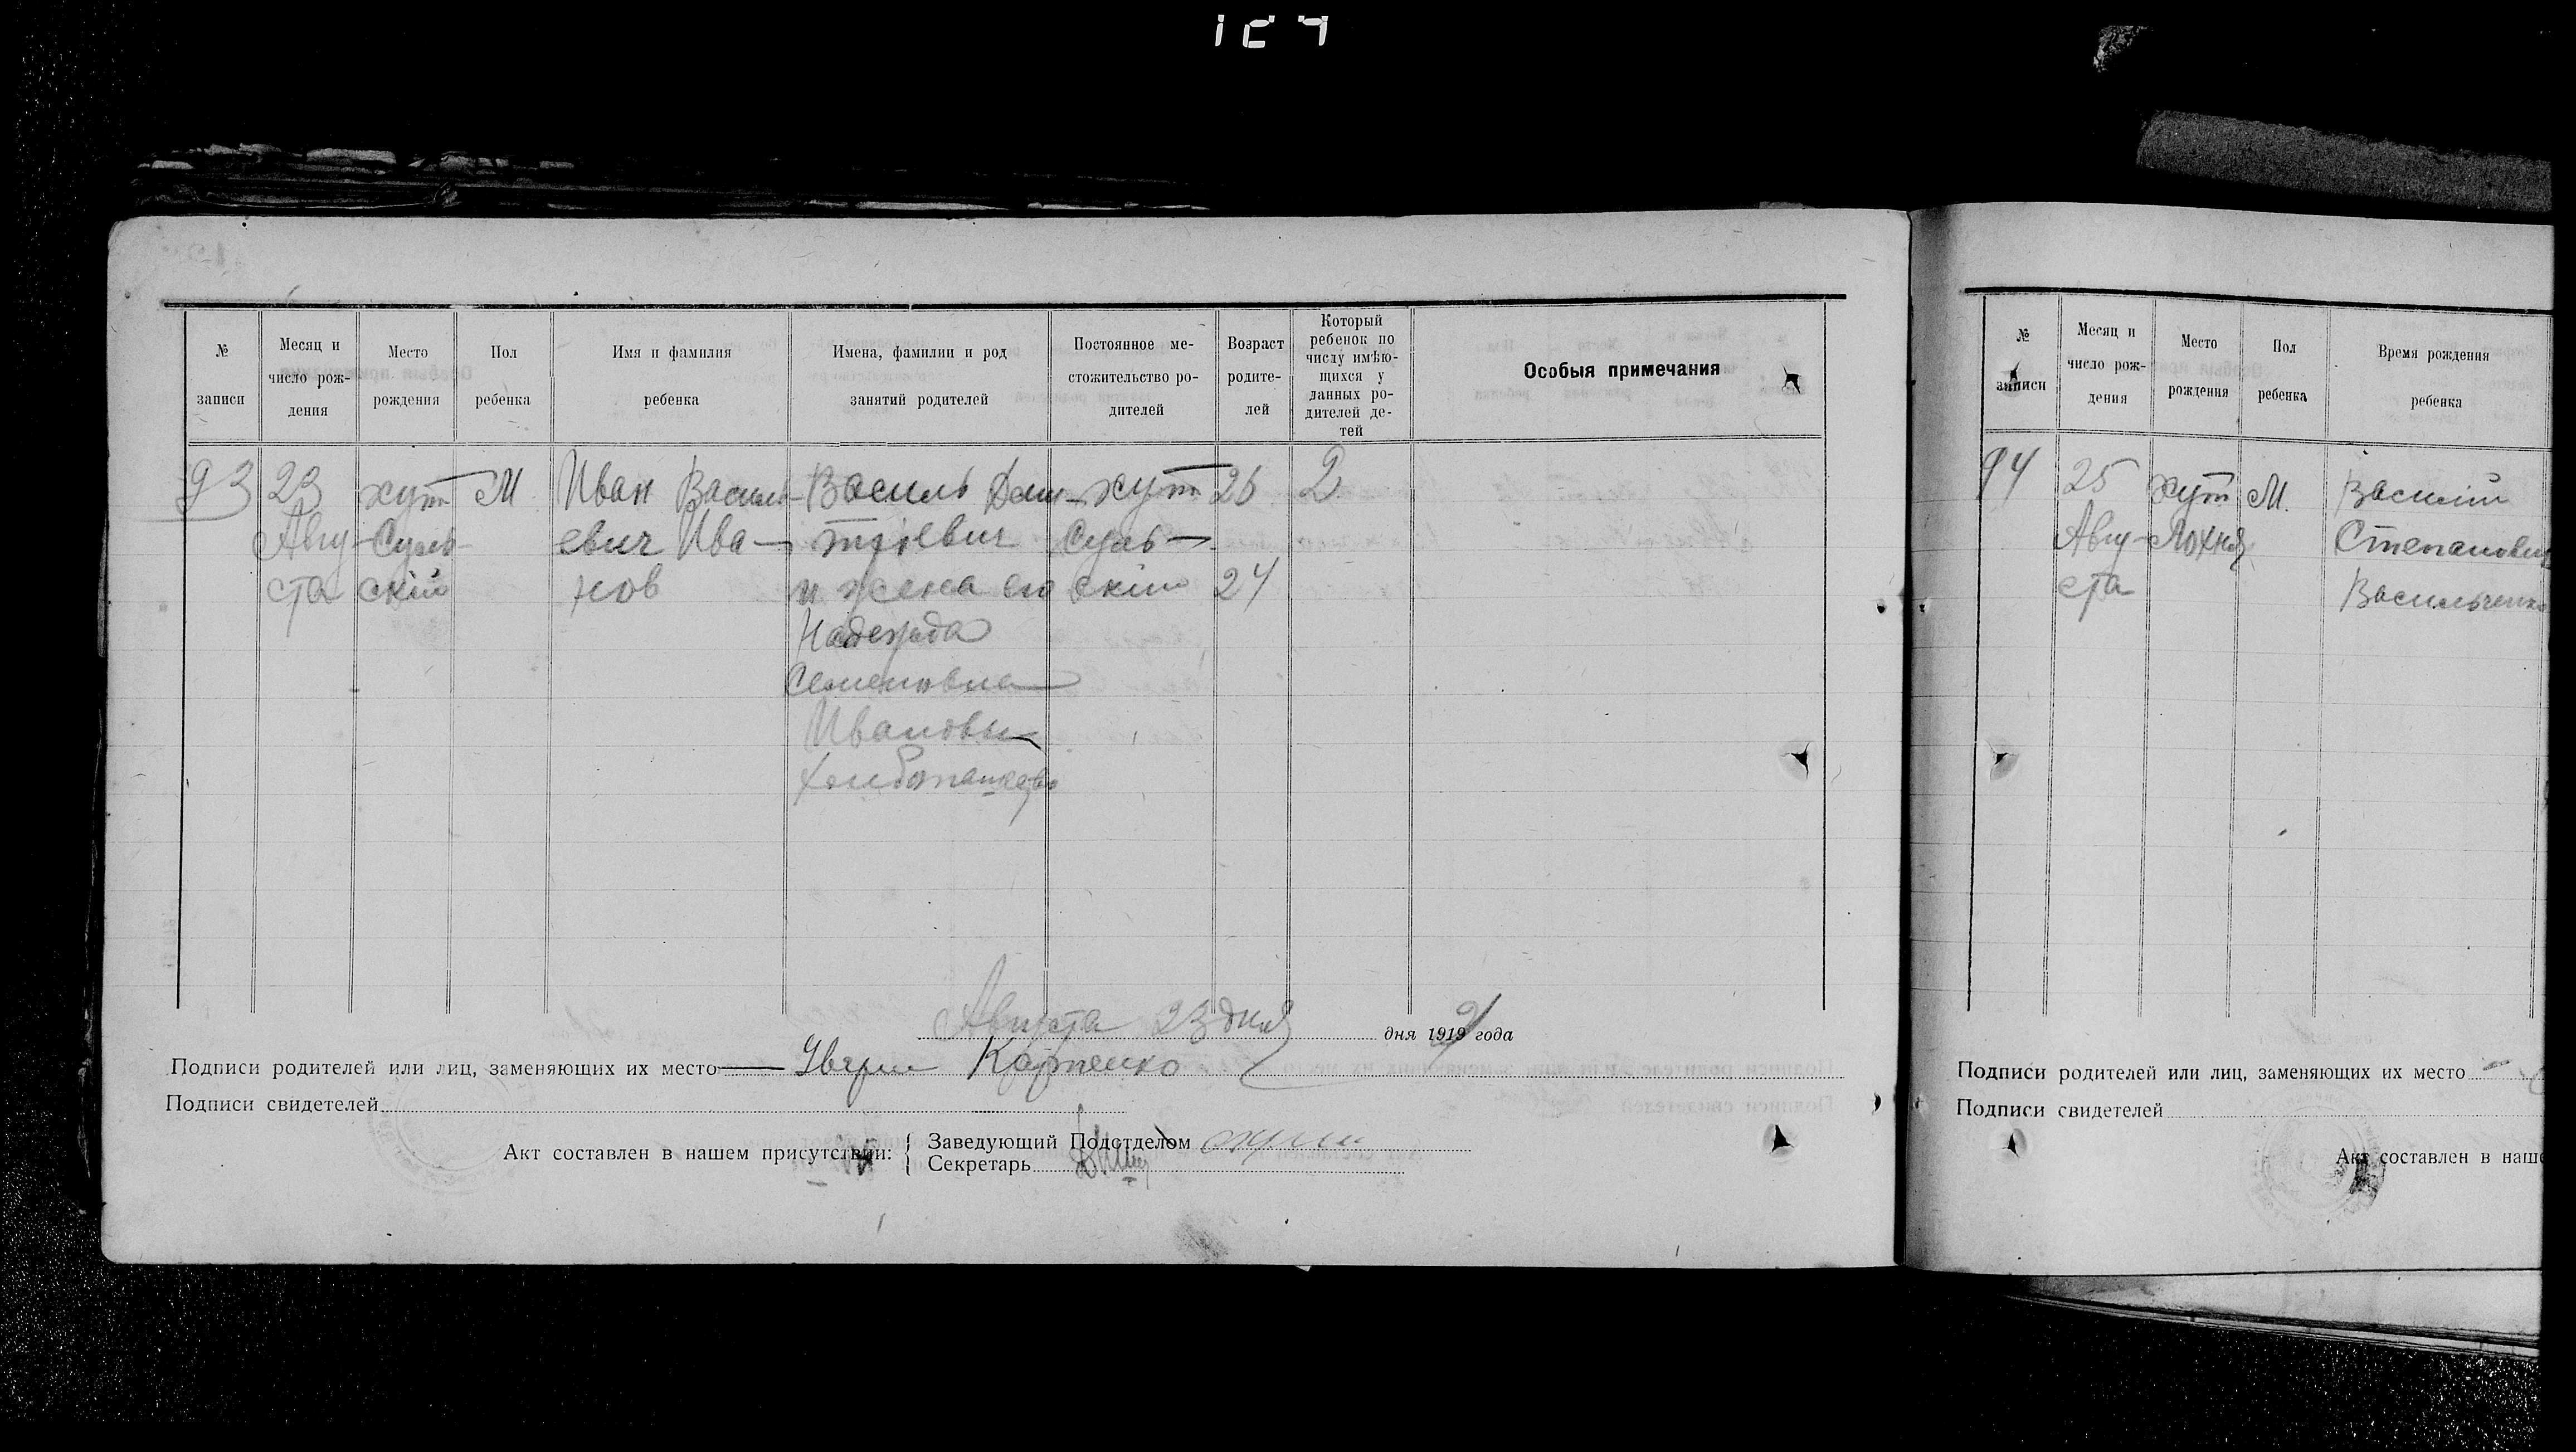 127
№ записи
Месяц и число рождения
Место рождения
Пол ребенка
Имя и фамилия ребенка
Имена, фамилии и род занятий родителей
Постоянное местожительство родителей
Возраст родителей
Который ребенок по числу имѣющихся у данных родителей детей
Особыя примечания
93
23
Авгу-
ста
хут
Суль-
ский
М
Иван Василь-
евич Ива-
нов
Василь Дми-
тріевич
и жена его
Надежда
Семеновна
Ивановы
хут
Суль-
ский
26
24
2
Августа 23 дня дня 1919 года
Подписи родителей или лиц, заменяющих их место Карпенко
Подписи свидетелей
Акт составлен в нашем присутствии:
Заведующий Подотделом
Секретарь
№ записи
Месяц и число рождения
Место рождения
Пол ребенка
Время рождения ребенка
94
25
Авгу-
ста
хут
Лохня
М.
Василій
Степанович
Васильченко
Подписи родителей или лиц, заменяющих их место
Подписи свидетелей
Акт составлен в наше